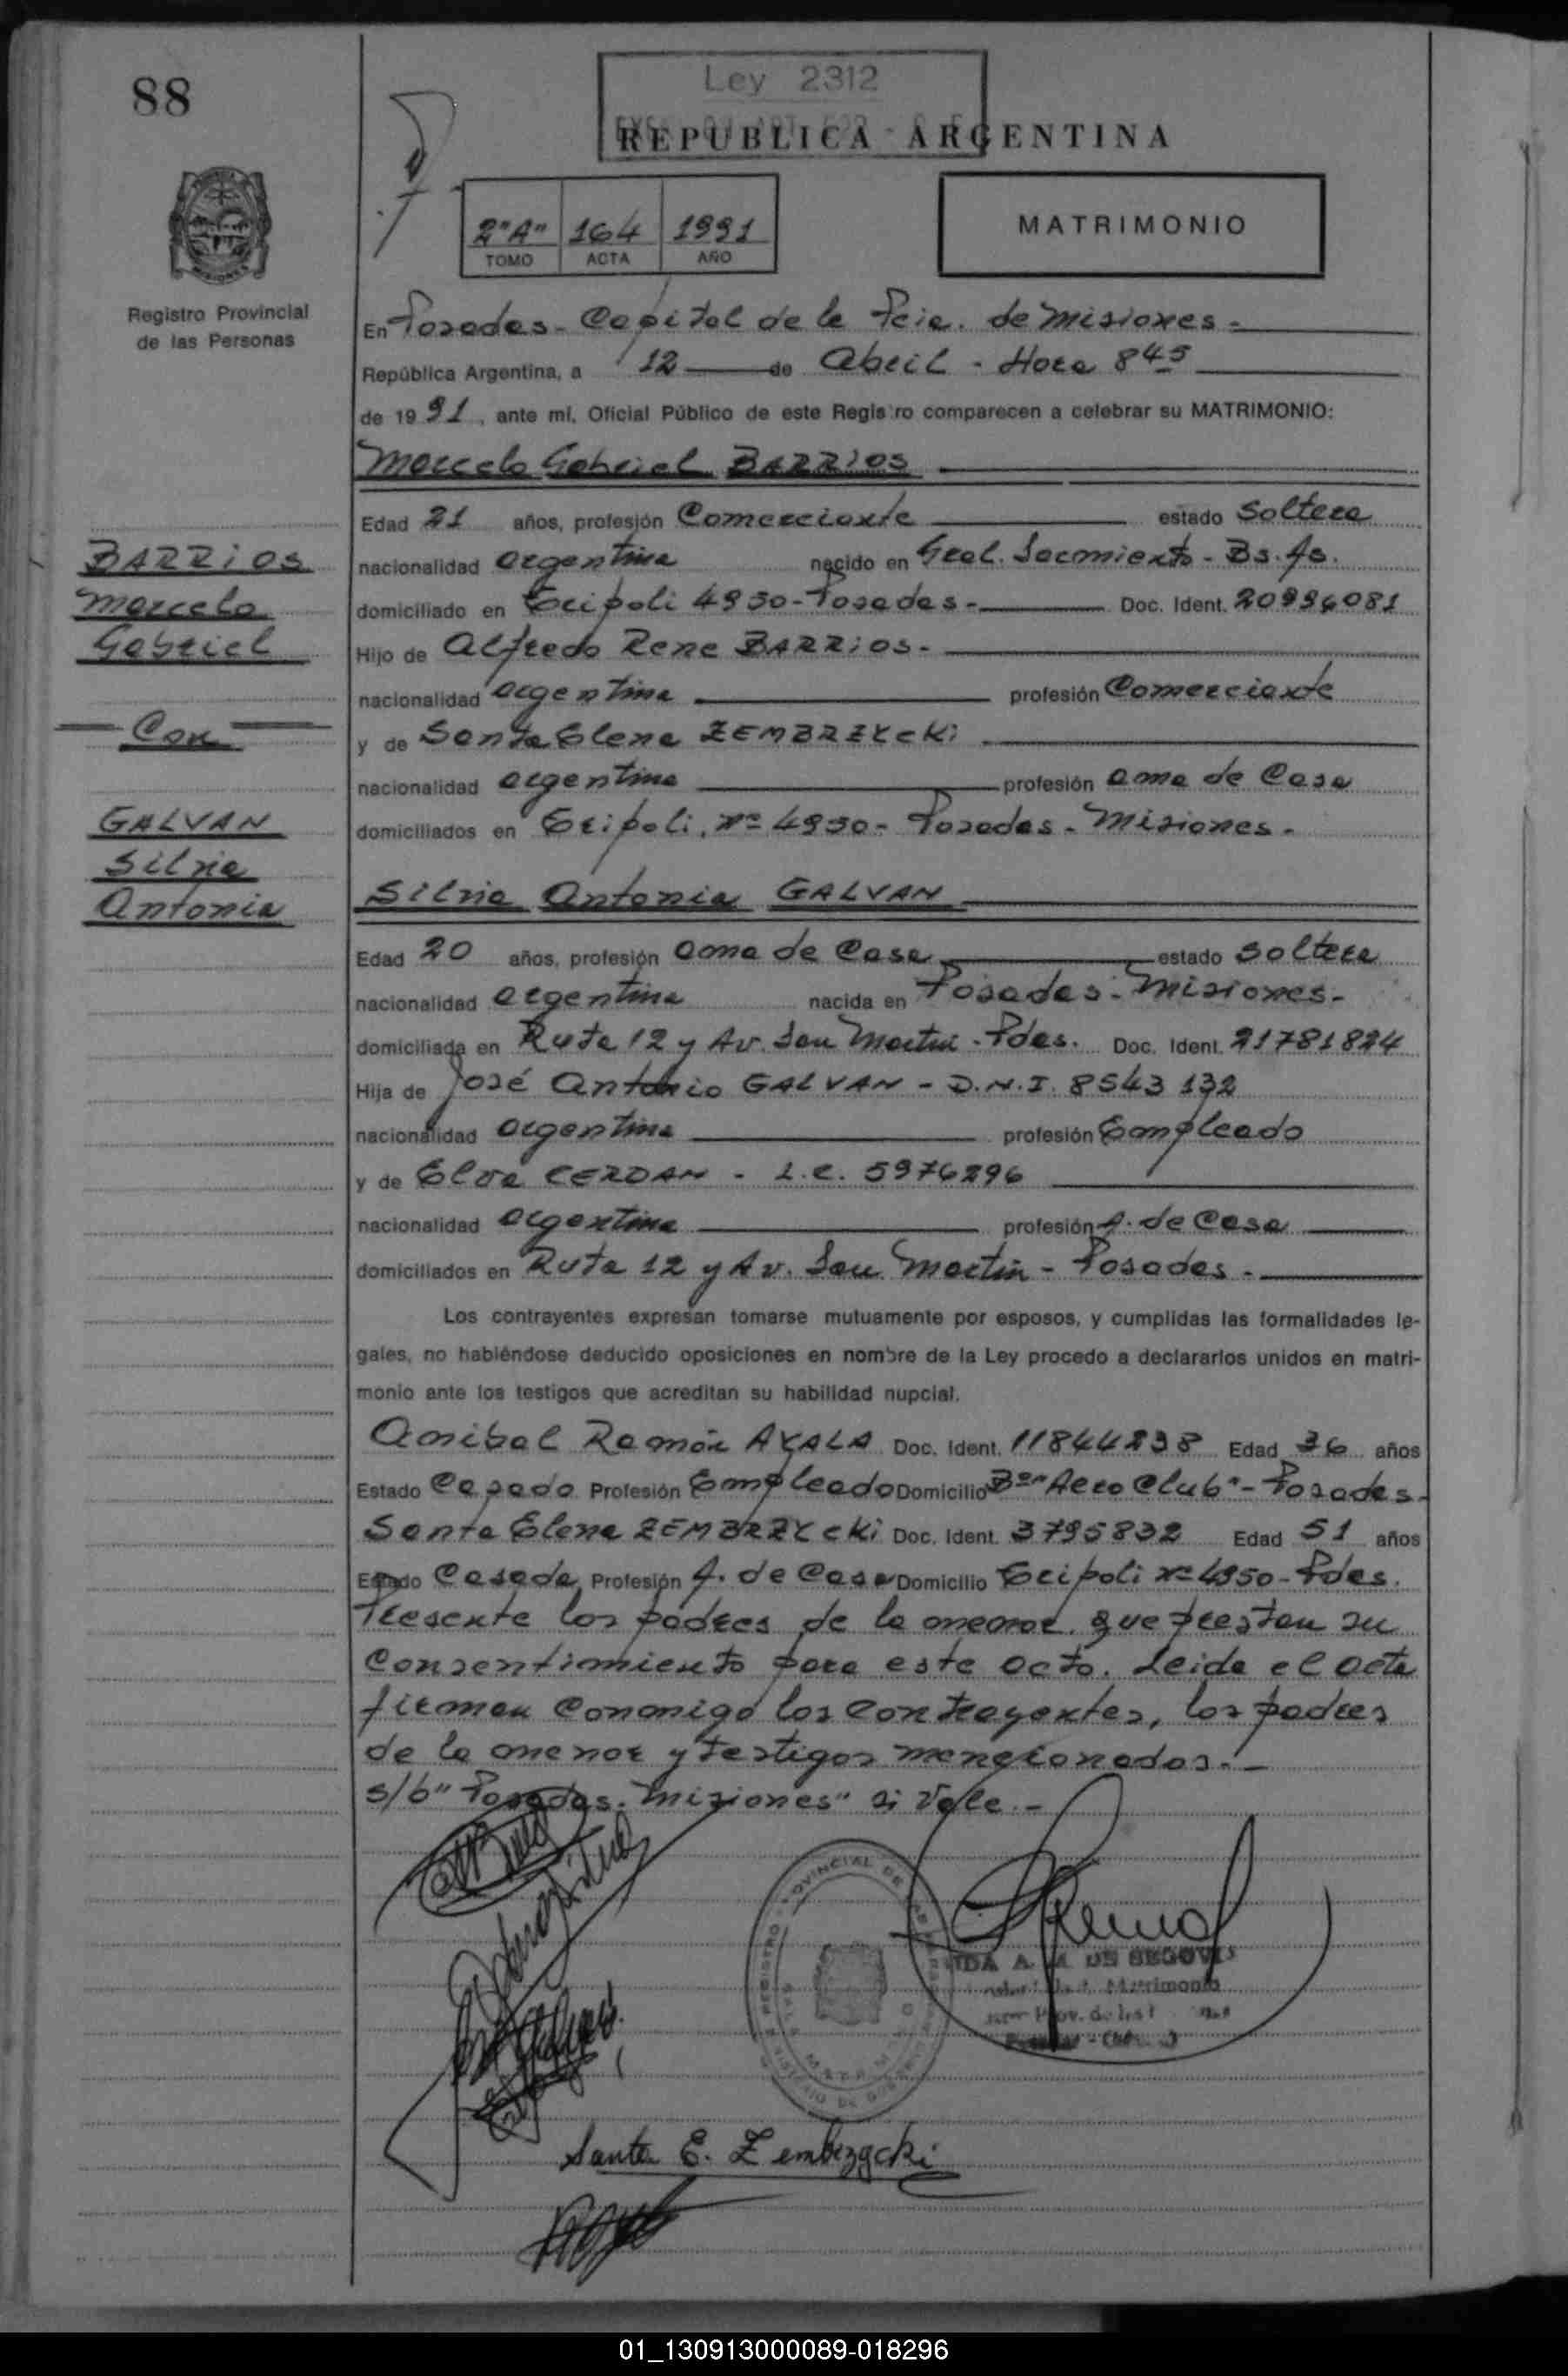 88
Ley 2312
REPUBLICA ARGENTINA
2"A" 164 1991
TOMO ACTA AÑO
MATRIMONIO
Registro Provincial
de las Personas
En Posadas - Capital de la Pcia. de Misiones -
República Argentina, a 12 de Abril - Hora 8 45
de 19 91, ante mí, Oficial Público de este Registro comparecen a celebrar su MATRIMONIO:
Marcelo Gabriel BARRIOS
Edad 21 años, profesión Comerciante estado Soltero
nacionalidad argentina nacido en Gral. Sarmiento - Bs. As.
domiciliado en Tripoli 4950 - Posadas - Doc. Ident. 20996081
Hijo de Alfredo Rene BARRIOS -
nacionalidad argentina profesión Comerciante
y de Santa Elena ZEMBRZYCKI
nacionalidad argentina profesión ama de Casa
domiciliados en Tripoli, nº 4950 - Posadas - Misiones -
BARRIOS
Marcelo
Gabriel
Con
GALVAN
Silvia
Antonia
Silvia Antonia GALVAN
Edad 20 años, profesión ama de Casa estado Soltera
nacionalidad argentina nacida en Posadas - Misiones -
domiciliada en Ruta 12 y Av. San Martin - Pdas. Doc. Ident. 21781824
Hija de José Antonio GALVAN - D.N.I. 8543132
nacionalidad argentina profesión Empleado
y de Elva CERDAN - L.C. 5976296
nacionalidad argentina profesión A. de Casa
domiciliados en Ruta 12 y Av. San Martin - Posadas -
Los contrayentes expresan tomarse mutuamente por esposos, y cumplidas las formalidades le-
gales, no habiéndose deducido oposiciones en nombre de la Ley procedo a declararlos unidos en matri-
monio ante los testigos que acreditan su habilidad nupcial.
Anibal Ramón AYALA Doc. Ident. 11844238 Edad 36 años
Estado Casado Profesión Empleado Domicilio Bº "Aero Club" - Posadas -
Santa Elena ZEMBRZYCKI Doc. Ident. 3795832 Edad 51 años
Estado Casada Profesión A. de Casa Domicilio Tripoli nº 4950 - Pdas.
Presente los padres de la menor que prestan su
Consentimiento para este acto. Leida el acta
firman Conmigo los Contrayentes, los padres
de la menor y testigos mencionados. -
s/b "Posadas - Misiones" si Vale. -
DA A. DE SEGOVIA
Matrimonio
Santa E. Zembrzycki
01_130913000089-018296